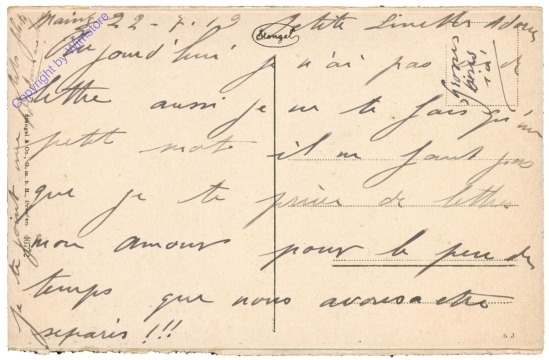 Mainz 22-7-19 Petite Linette Adorée
Aujourd'hui je n'ai pas de
lettre aussi je ne te fais qu'un
petit mot il ne faut pas
que je te prive de lettres
mon amour pour le peu de
temps que nous avons a etre
separis !!!
Stengel
Grosses
bises
ici
je te joint une
Stengel & Co., G. m. b. H., Dresden
S J
Copyright by